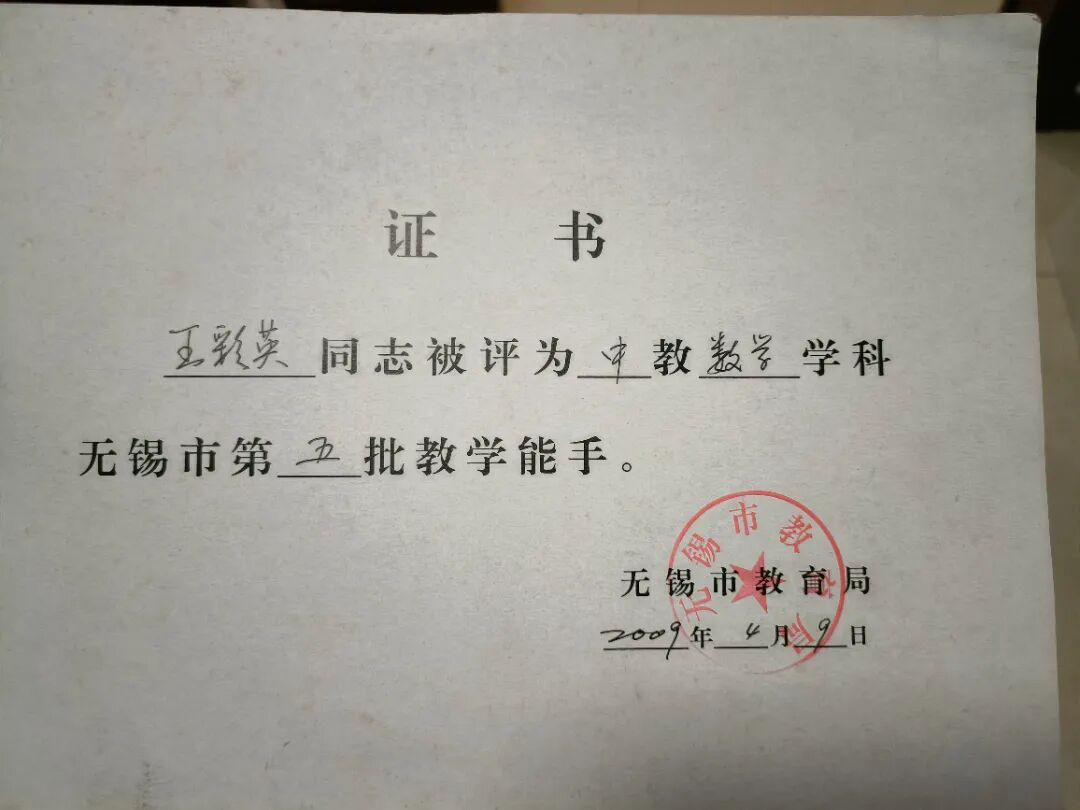 证 书
王彩英同志被评为中教数学学科
无锡市第五批教学能手。
无锡市教育局
无锡市教育局
2009年4月9日